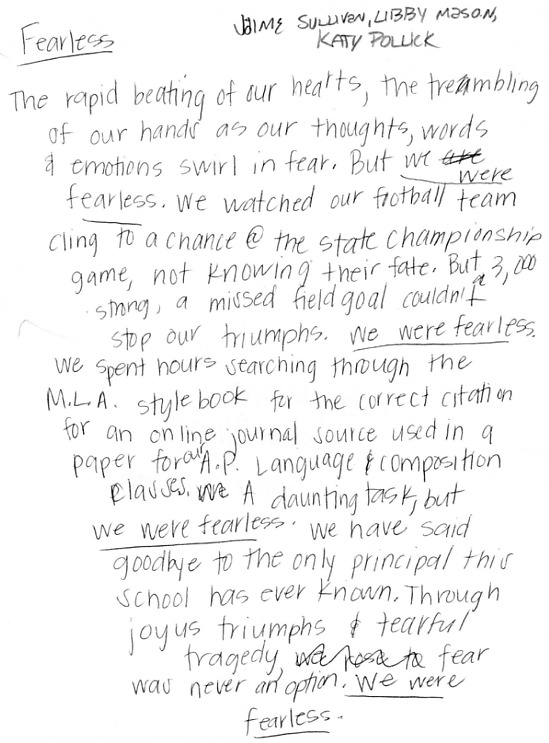 Fearless
JAIME SULLIVAN, LIBBY MASON,
KATY POLLICK
The rapid beating of our hearts, the trembling
of our hands as our thoughts, words
& emotions swirl in fear. But we are were
fearless. We watched our football team
cling to a chance @ the state championship
game, not knowing their fate. But, a 3,000
strong, a missed field goal couldn't
stop our triumphs. We were fearless.
We spent hours searching through the
M.L.A. stylebook for the correct citation
for an online journal source used in a
paper for our A.P. Language & composition
classes. We A daunting task, but
we were fearless. We have said
goodbye to the only principal this
school has ever known. Through
joyus triumphs & tearful
tragedy, fear
was never an option. We were
fearless.